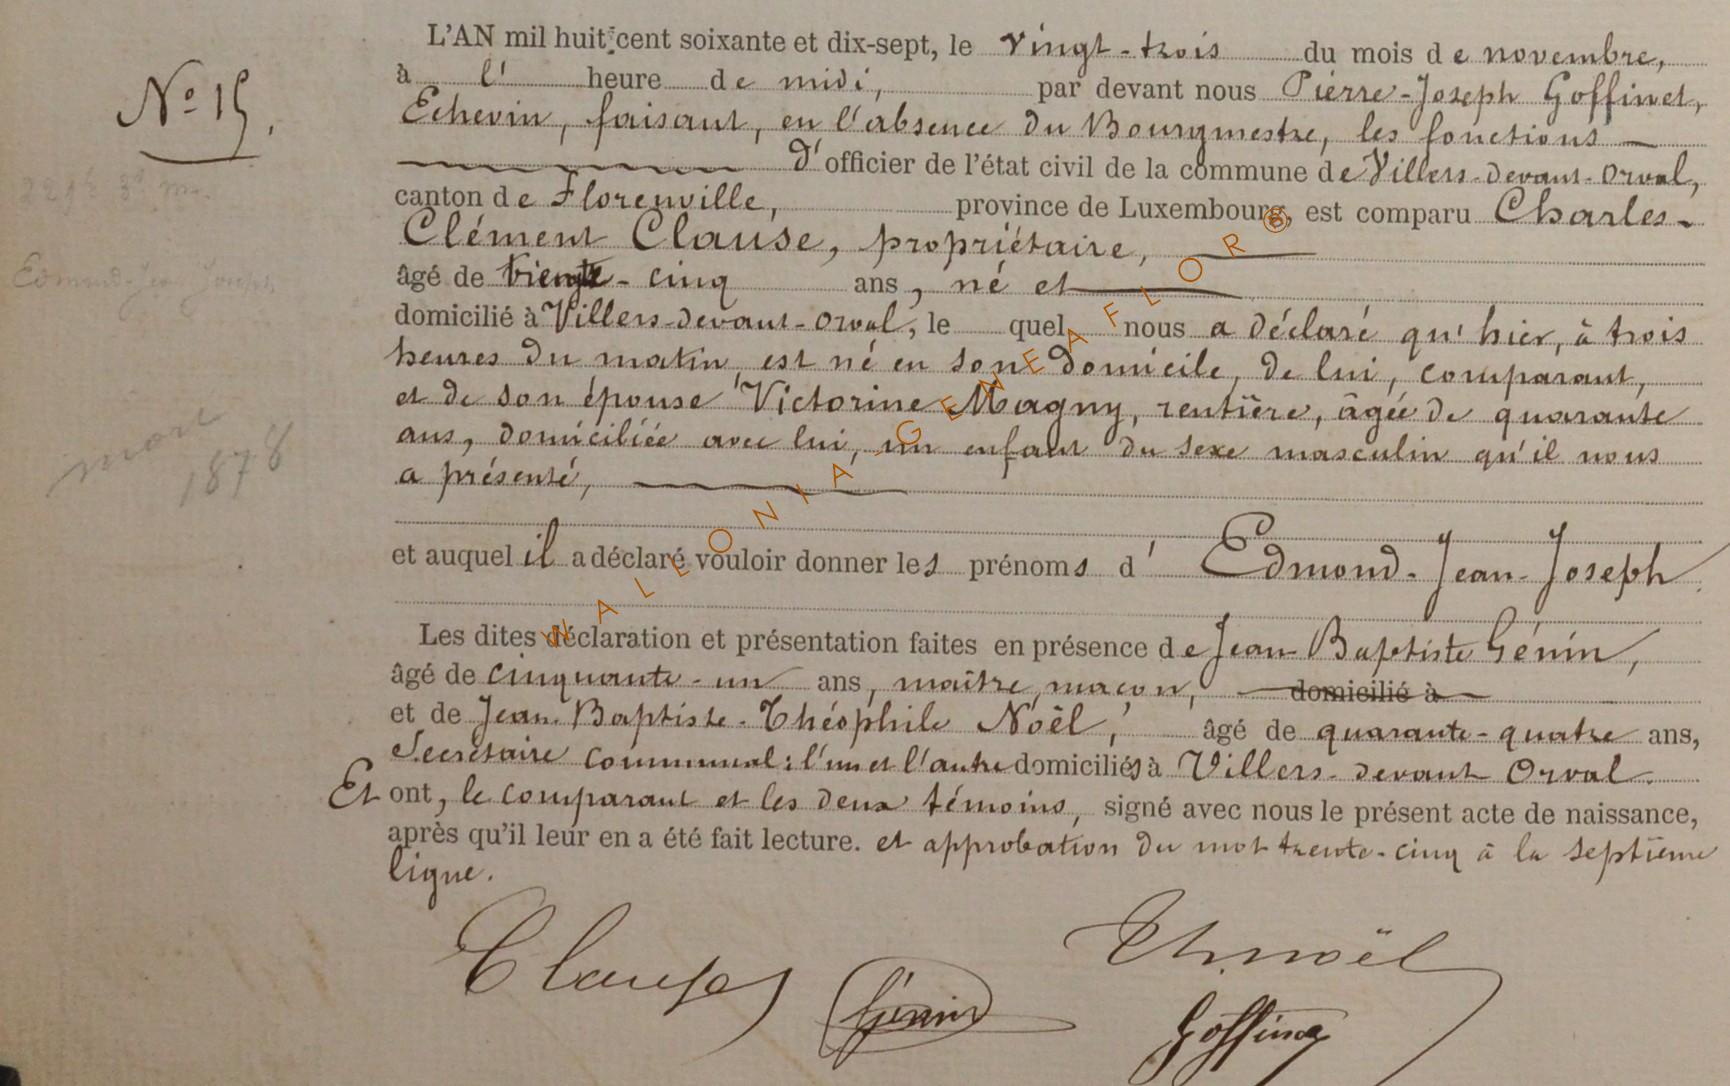 L'AN mil huit-cent soixante et dix-sept, le vingt-trois du mois de novembre,
N° 15.
à l' heure de midi, par devant nous Pierre-Joseph Goffinet,
Echevin, faisant, en l'absence du Bourgmestre, les fonctions
d'officier de l'état civil de la commune de Villers-devant-Orval,
canton de Florenville, province de Luxembourg, est comparu Charles-
Clément Clause, propriétaire,
âgé de trente-cinq ans, né et
Edmond-Jean-Joseph
domicilié à Villers-devant-Orval, le quel nous a déclaré qu'hier, à trois
heures du matin, est né en son domicile, de lui, comparant,
et de son épouse Victorine Magny, rentière, âgée de quarante
ans, domiciliée avec lui, un enfant du sexe masculin qu'il nous
a présenté,
mort
1878
et auquel il a déclaré vouloir donner les prénoms d' Edmond-Jean-Joseph
Les dites déclaration et présentation faites en présence de Jean-Baptiste Génin,
âgé de cinquante-un ans, maître maçon, domicilié à
et de Jean-Baptiste-Théophile Noël, âgé de quarante-quatre ans,
Secrétaire communal: l'un et l'autre domiciliés à Villers-devant Orval.
Et ont, le comparant et les deux témoins, signé avec nous le présent acte de naissance,
après qu'il leur en a été fait lecture. et approbation du mot trente-cinq à la septième
ligne.
Clause
Th. Noël
Génin
Goffinet
WALLONIA-GENEAFLOR®